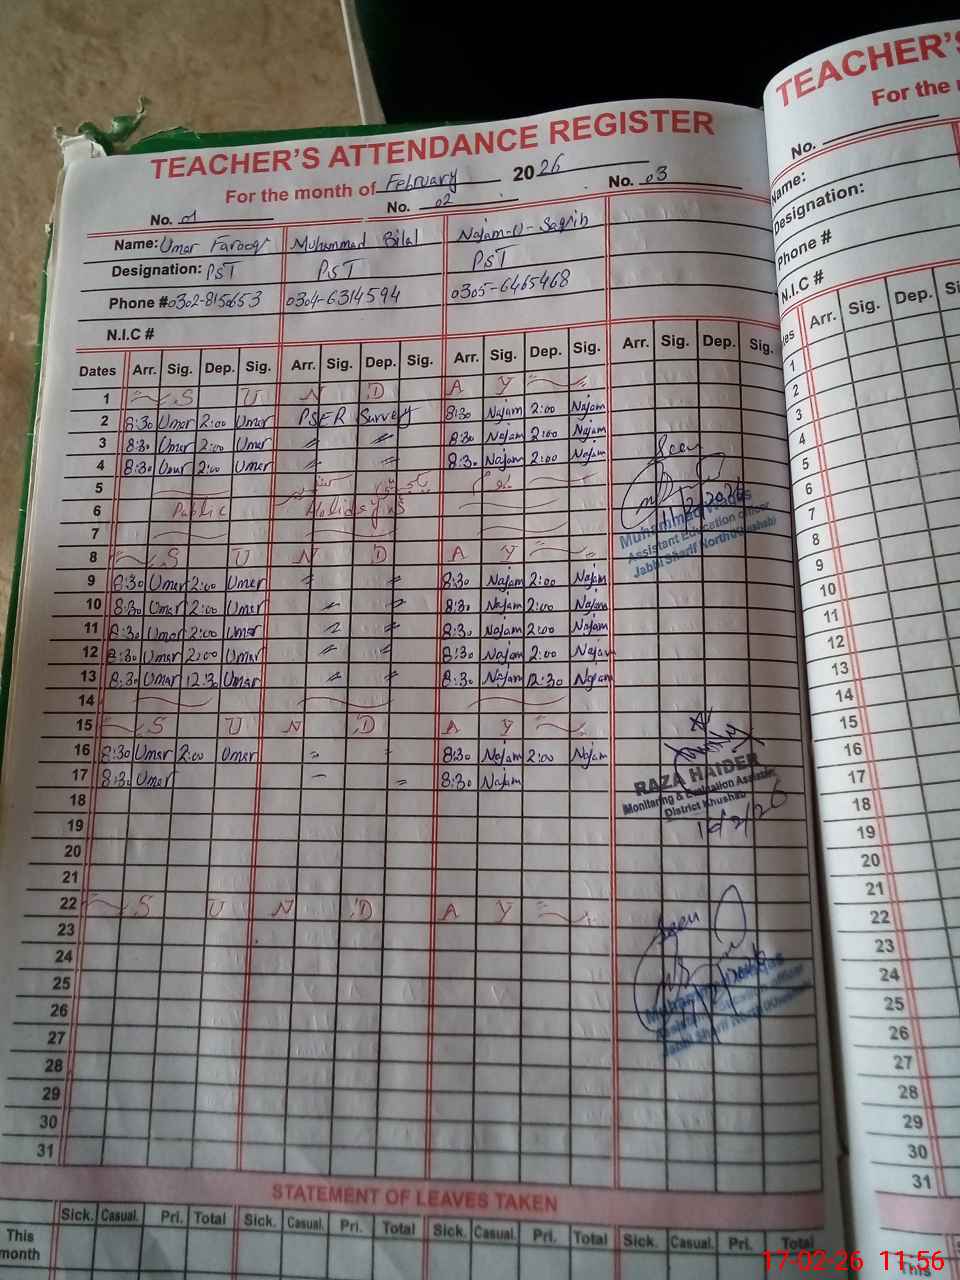 TEACHER'S ATTENDANCE REGISTER
For the month of February 2026
No. 01 No. 02 No. 03
Name: Umar Farooq Muhammad Bilal Najam-U-Saqib
Designation: PST PST PST
Phone # 0302-815653 0304-6314594 0305-6465468
N.I.C #
Dates Arr. Sig. Dep. Sig. Arr. Sig. Dep. Sig. Arr. Sig. Dep. Sig. Arr. Sig. Dep. Sig.
1 S U N D A Y
2 8:30 Umar 2:00 Umar PSER Survey 8:30 Najam 2:00 Najam
3 8:30 Umar 2:00 Umar 〃 〃 8:30 Najam 2:00 Najam
4 8:30 Umar 2:00 Umar 〃 〃 8:30 Najam 2:00 Najam
5
6 Public Holidays
7
8 S U N D A Y
9 8:30 Umar 2:00 Umar 〃 〃 8:30 Najam 2:00 Najam
10 8:30 Umar 2:00 Umar 〃 〃 8:30 Najam 2:00 Najam
11 8:30 Umar 2:00 Umar 〃 〃 8:30 Najam 2:00 Najam
12 8:30 Umar 2:00 Umar 〃 〃 8:30 Najam 2:00 Najam
13 8:30 Umar 12:30 Umar 〃 〃 8:30 Najam 12:30 Najam
14
15 S U N D A Y
16 8:30 Umar 2:00 Umar 〃 〃 8:30 Najam 2:00 Najam
17 8:30 Umar 〃 8:30 Najam
18
19
20
21
22 S U N D A Y
23
24
25
26
27
28
29
30
31
Seen
Muhammad Waqas
Assistant Education Officer
Jabbi Sharif North (Khushab)
RAZA HAIDER
Monitoring & Evaluation Assistant
District Khushab
Seen
Jabbi Sharif North (Khushab)
STATEMENT OF LEAVES TAKEN
Sick. Casual. Pri. Total Sick. Casual. Pri. Total Sick. Casual. Pri. Total Sick. Casual. Pri. Total
This month
TEACHER'S
For the
No.
Name:
Designation:
Phone #
N.I.C #
Arr. Sig. Dep.
1
2
3
4
5
6
7
8
9
10
11
12
13
14
15
16
17
18
19
20
21
22
23
24
25
26
27
28
29
30
31
This
17-02-26 11:56